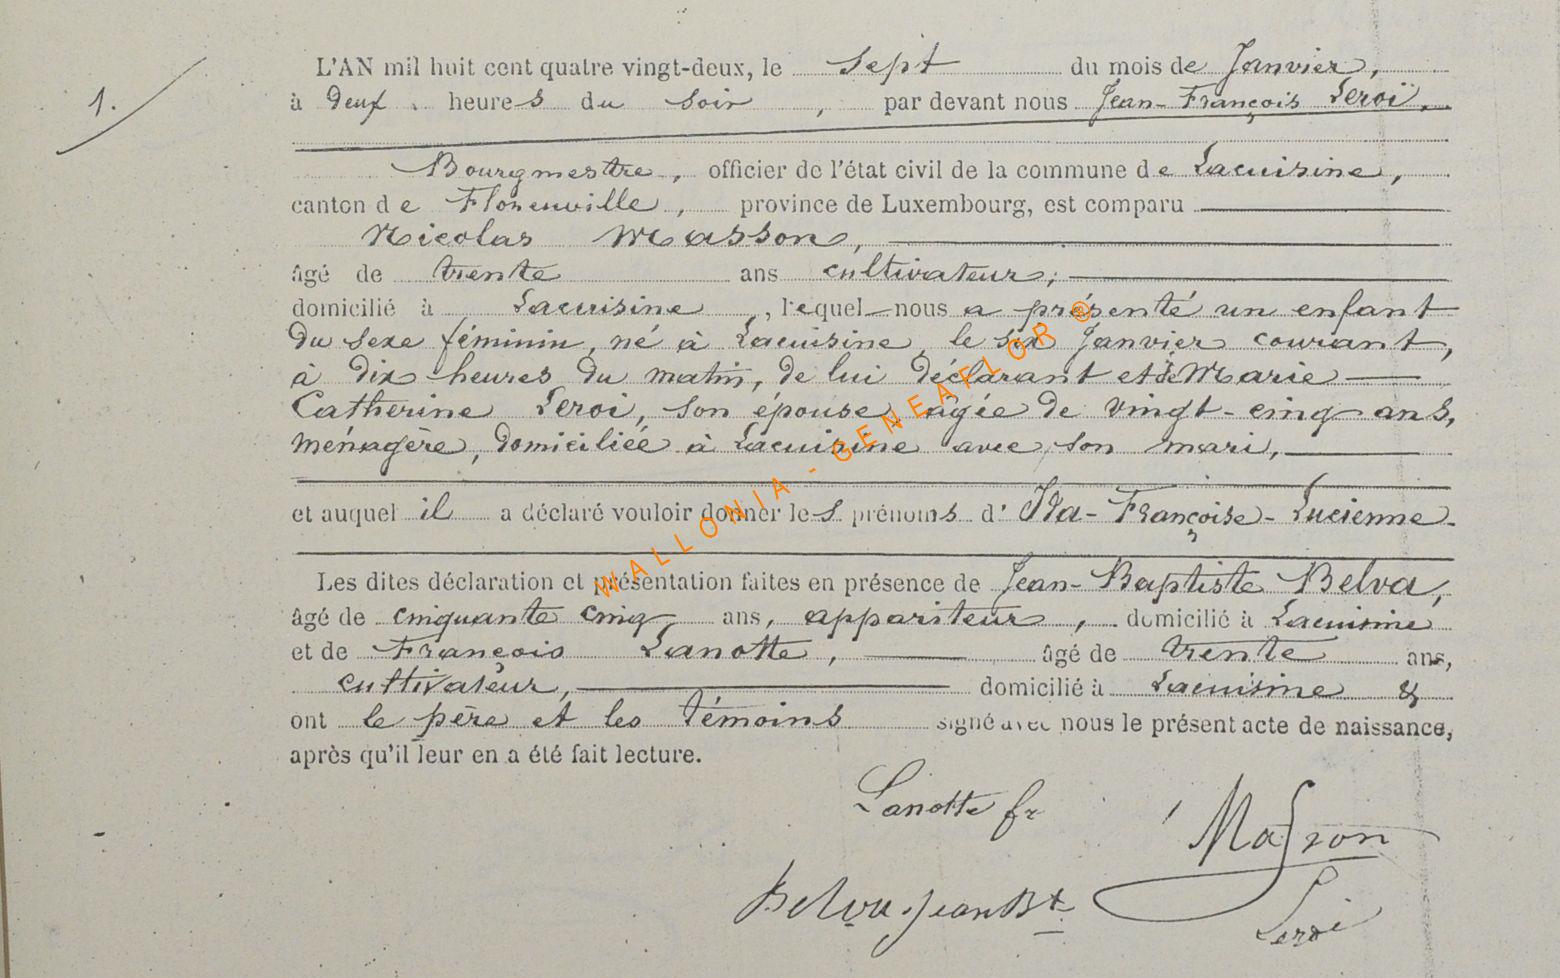 1.
L'AN mil huit cent quatre vingt-deux, le sept du mois de Janvier,
à deux heures du soir, par devant nous Jean-François Leroi,
Bourgmestre, officier de l'état civil de la commune de Lacuisine,
canton de Florenville, province de Luxembourg, est comparu
Nicolas Masson,
âgé de trente ans cultivateur,
domicilié à Lacuisine, lequel nous a présenté un enfant
du sexe féminin, né à Lacuisine, le six Janvier courant,
à dix heures du matin, de lui déclarant et de Marie
Catherine Leroi, son épouse, âgée de vingt-cinq ans,
ménagère, domiciliée à Lacuisine avec son mari,
et auquel il a déclaré vouloir donner les prénoms d'Ida-Françoise-Lucienne.
Les dites déclaration et présentation faites en présence de Jean-Baptiste Belva,
âgé de cinquante cinq ans, appariteur, domicilié à Lacuisine
et de François Lanotte, âgé de trente ans,
cultivateur, domicilié à Lacuisine &
ont le père et les témoins signé avec nous le présent acte de naissance,
après qu'il leur en a été fait lecture.
Lanotte fr
Masson
Belva Jean Bte
Leroi
WALLONIA - GENEAFLOR ©